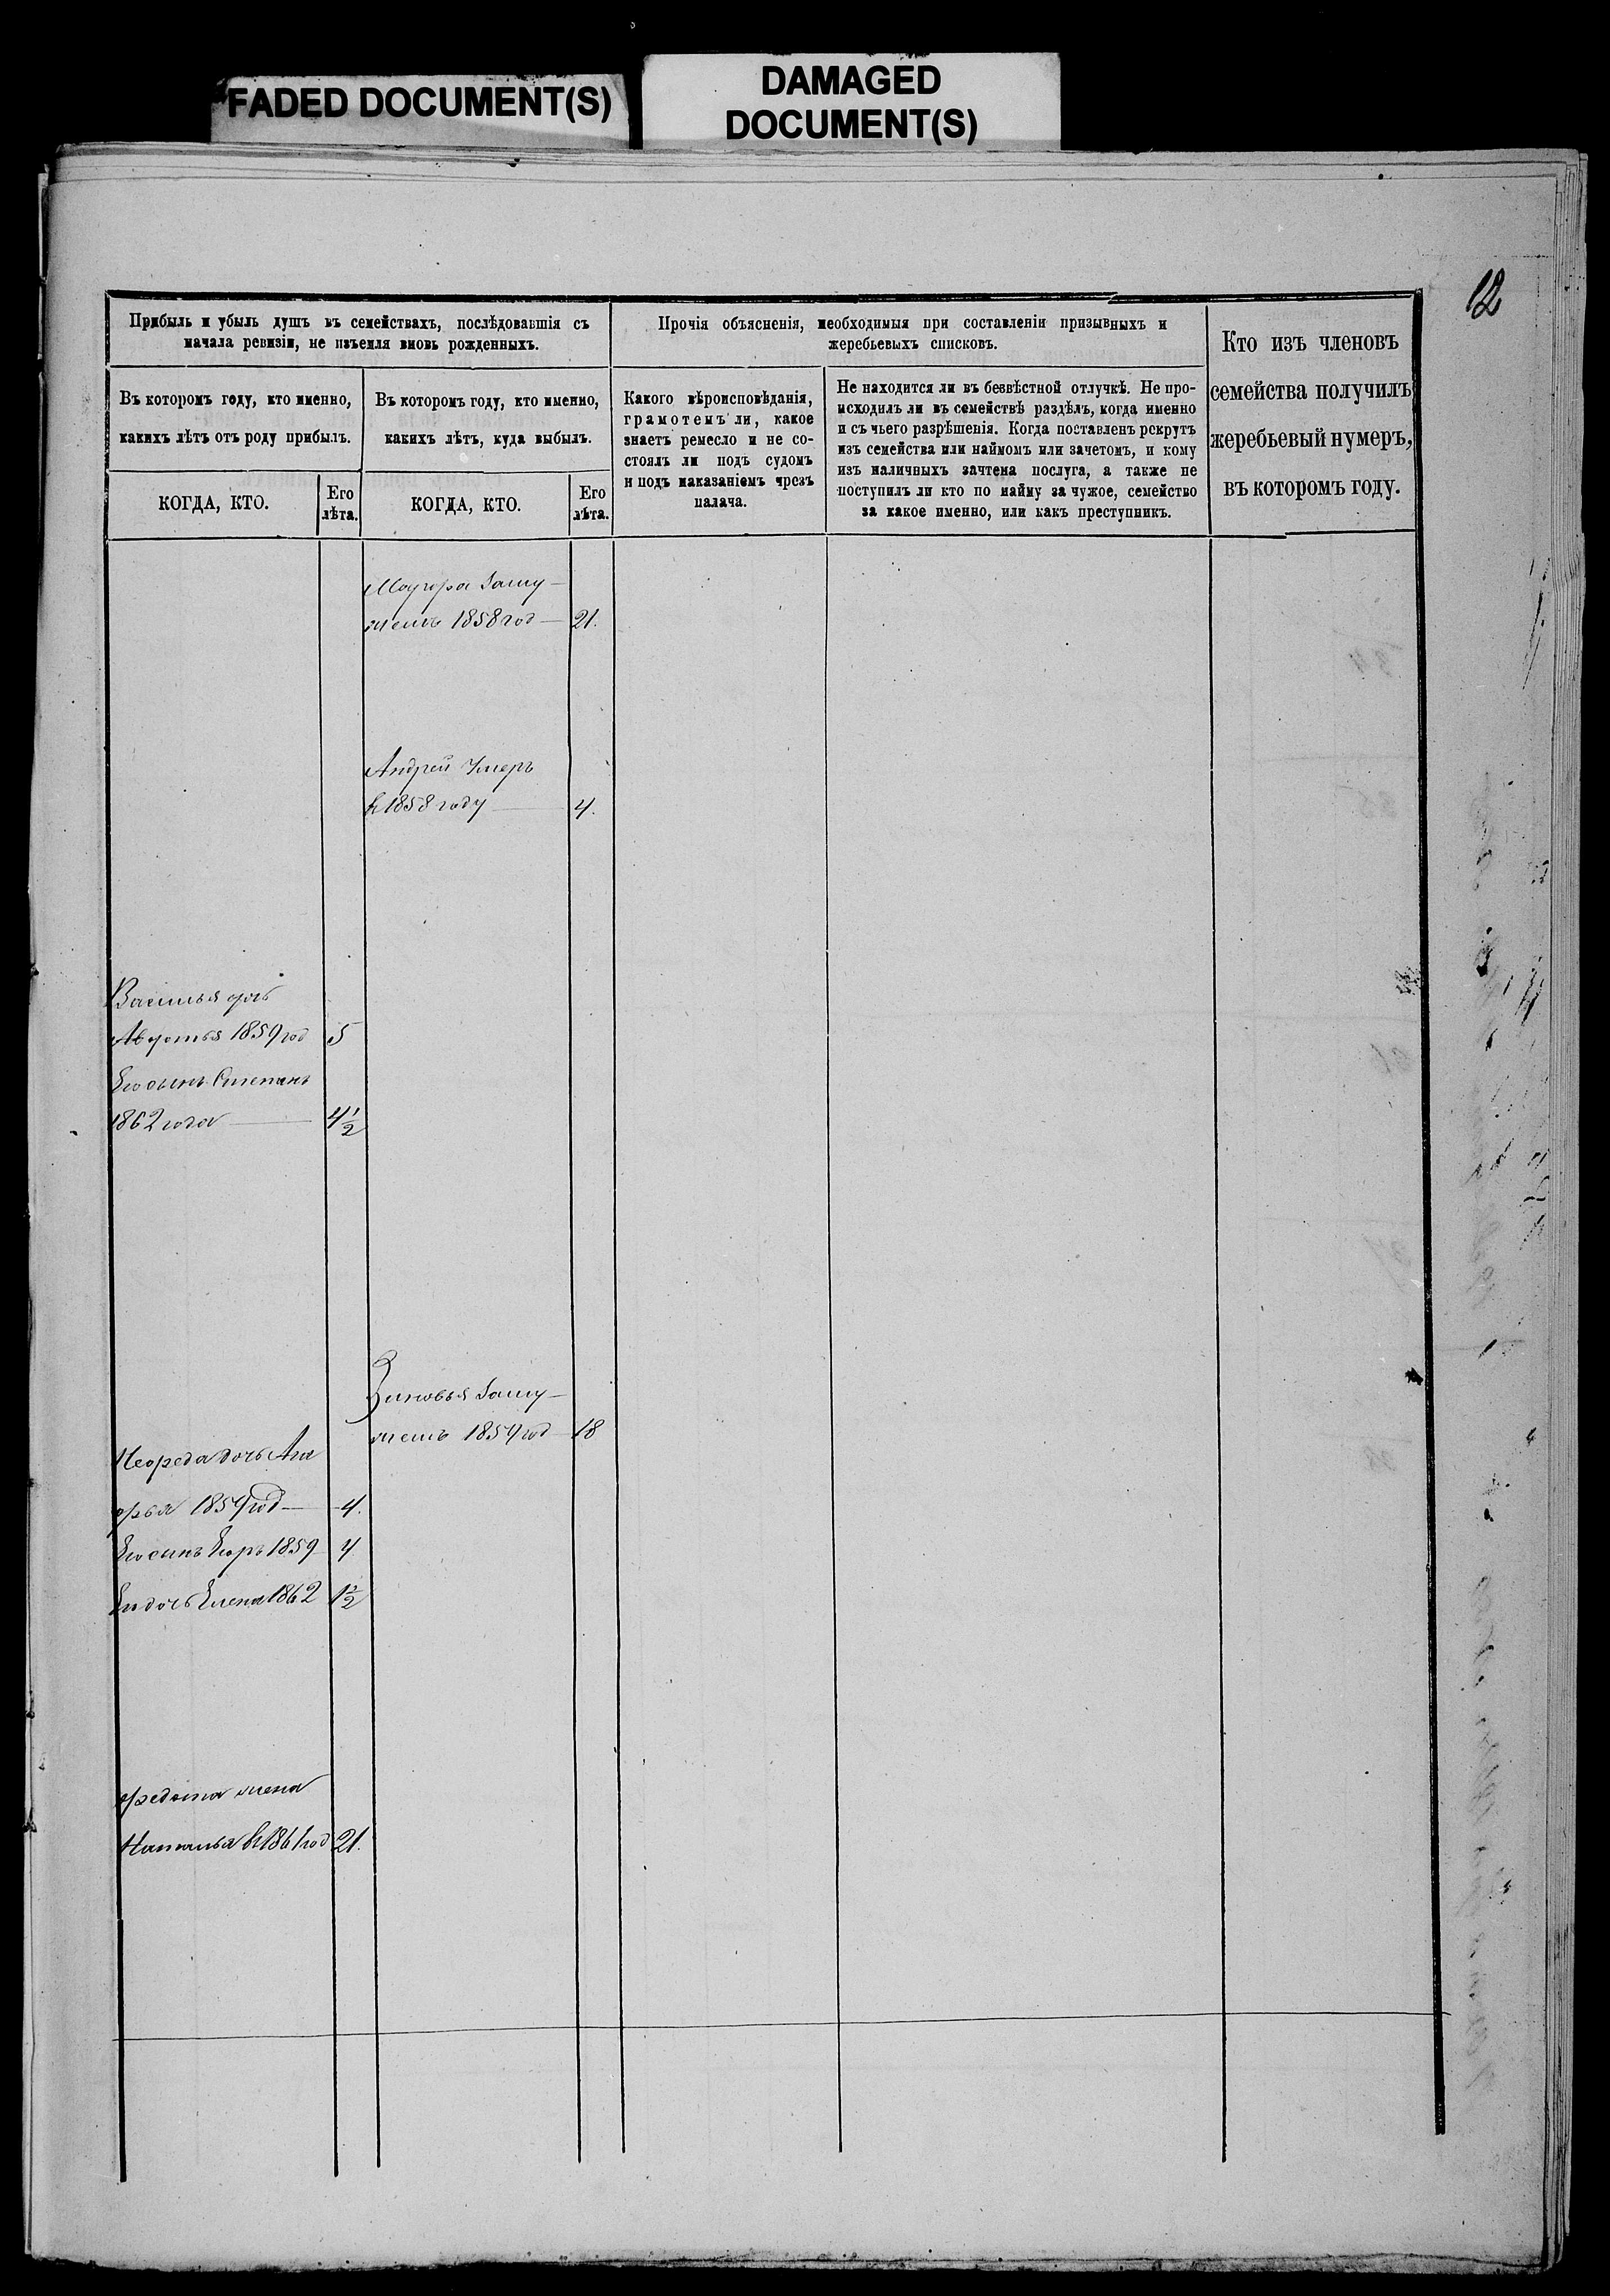 FADED DOCUMENT(S)
DAMAGED
DOCUMENT(S)
12
Прибыль и убыль душъ въ семействахъ, послѣдовавшія съ
начала ревизіи, не изъемля вновь рожденныхъ.
Въ которомъ году, кто именно,
какихъ лѣтъ отъ роду прибылъ.
КОГДА, КТО.
Его
лѣта.
Въ которомъ году, кто именно,
какихъ лѣтъ, куда выбылъ.
КОГДА, КТО.
Его
лѣта.
Прочія объясненія, необходимыя при составленіи призывныхъ и
жеребьевыхъ списковъ.
Какого вѣроисповѣданія,
грамотенъ ли, какое
знаетъ ремесло и не со-
стоялъ ли подъ судомъ
и подъ наказаніемъ чрезъ
палача.
Не находится ли въ безвѣстной отлучкѣ. Не про-
исходилъ ли въ семействѣ раздѣлъ, когда именно
и съ чьего разрѣшенія. Когда поставленъ рекрутъ
изъ семейства или наймомъ или зачетомъ, и кому
изъ наличныхъ зачтена послуга, а также не
поступилъ ли кто по найму за чужое, семейство
за какое именно, или какъ преступникъ.
Кто изъ членовъ
семейства получилъ
жеребьевый нумеръ,
въ которомъ году.
Заму-
жемъ 1858 год 21.
Андрей Умеръ
в 1858 году 4.
Василья дочь
1859 год 5
Его сынъ Степанъ
1862 года
Зиновья Заму-
жемъ 1859 год 18
дочь Ага
фья 1859 год 4.
Его сынъ Егоръ 1859 4
Его дочь Елена 1862 1 1/2
Федота жена
Наталья в 1861 год 21.